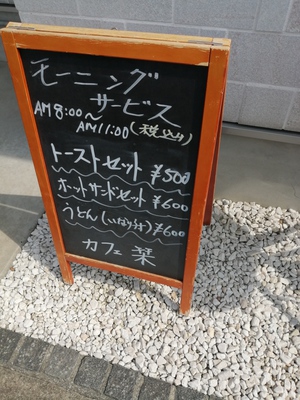 モーニング
サービス
AM8:00〜
AM11:00(税込み)
トーストセット ¥500
ホットサンドセット ¥600
うどん(いなり付き) ¥600
カフェ 栞